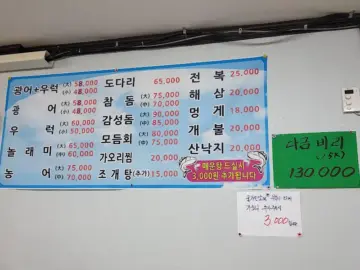 광어+우럭 (大) 58,000
(小) 48,000
광 어 (大) 58,000
(小) 48,000
우 럭 (大) 60,000
(小) 50,000
놀래미 (大) 65,000
(中) 60,000
농 어 (大) 75,000
(中) 70,000
도다리 65,000
참 돔 (大) 75,000
(中) 70,000
감성돔 (大) 90,000
(中) 85,000
모듬회 (大) 80,000
(中) 70,000
가오리찜 20,000
조개탕 (추가) 15,000
전 복 25,000
해 삼 20,000
멍 게 18,000
개 불 20,000
산낙지 20,000
매운탕 드실시
3,000원 추가됩니다
다금바리
130000
3,000